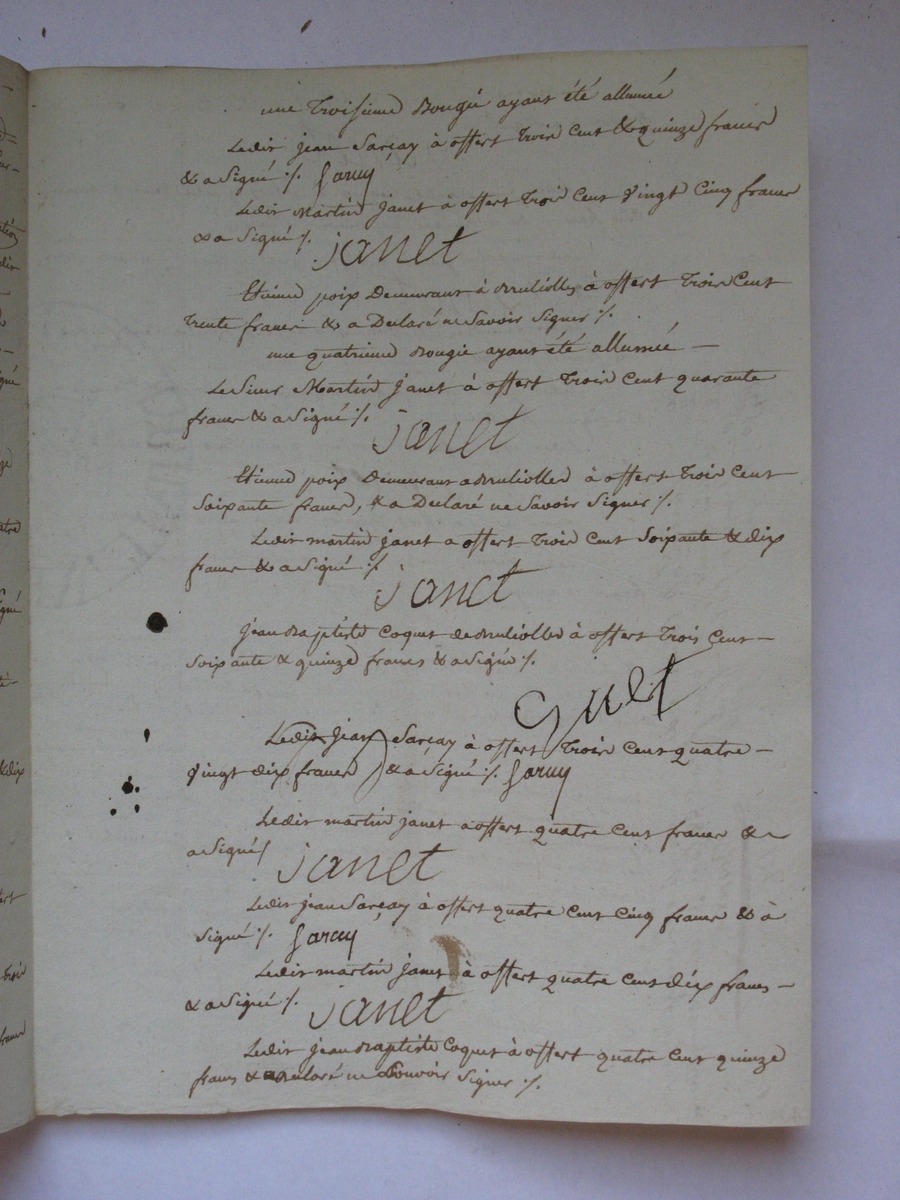 une troisieme Bougie ayant été allumée
Ledit jean Sarçay à offert trois Cent & quinze francs
& a Signé ./.
Ledit Martin janet à offert trois Cent Vingt Cinq francs
& a Signé ./. janet
Etienne poix Demeurant à à offert trois Cent
trente francs & a Declaré ne Savoir Signer ./.
une quatrieme Bougie ayant été allumée —
Le Sieur Martin janet à offert trois Cent quarante
francs & a Signé ./. janet
Etienne poix Demeurant a à offert trois Cent
Soixante francs, & a Declaré ne Savoir Signer ./.
Ledit martin janet a offert trois Cent Soixante & dix
francs & a Signé ./. janet
jean Baptiste Coquet de à offert trois Cent —
Soixante & quinze francs & a Signé ./.
Ledit jean Sarçay à offert trois Cent quatre —
Vingt dix francs & a Signé ./.
Ledit martin janet a offert quatre Cent francs & —
a Signé janet
Ledit jean Sarçay à offert quatre Cent Cinq francs & à
Signé ./.
Ledit martin janet à offert quatre Cent dix francs —
& a Signé ./. janet
Ledit jean Baptiste Coquet à offert quatre Cent quinze
francs & a Declaré ne Pouvoir Signer ./.